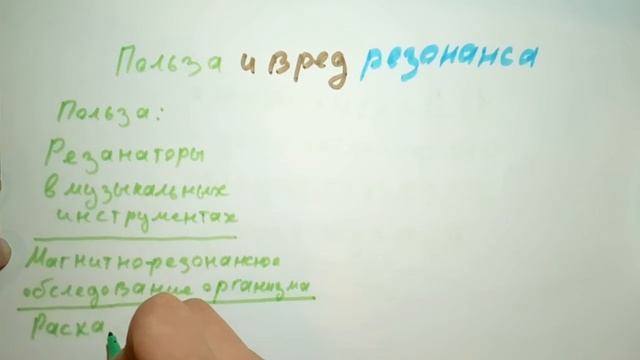 Польза и вред резонанса
Польза:
Резанаторы
в музыкальных
инструментах
Магнитно-резонансное
обследование организма
Раска